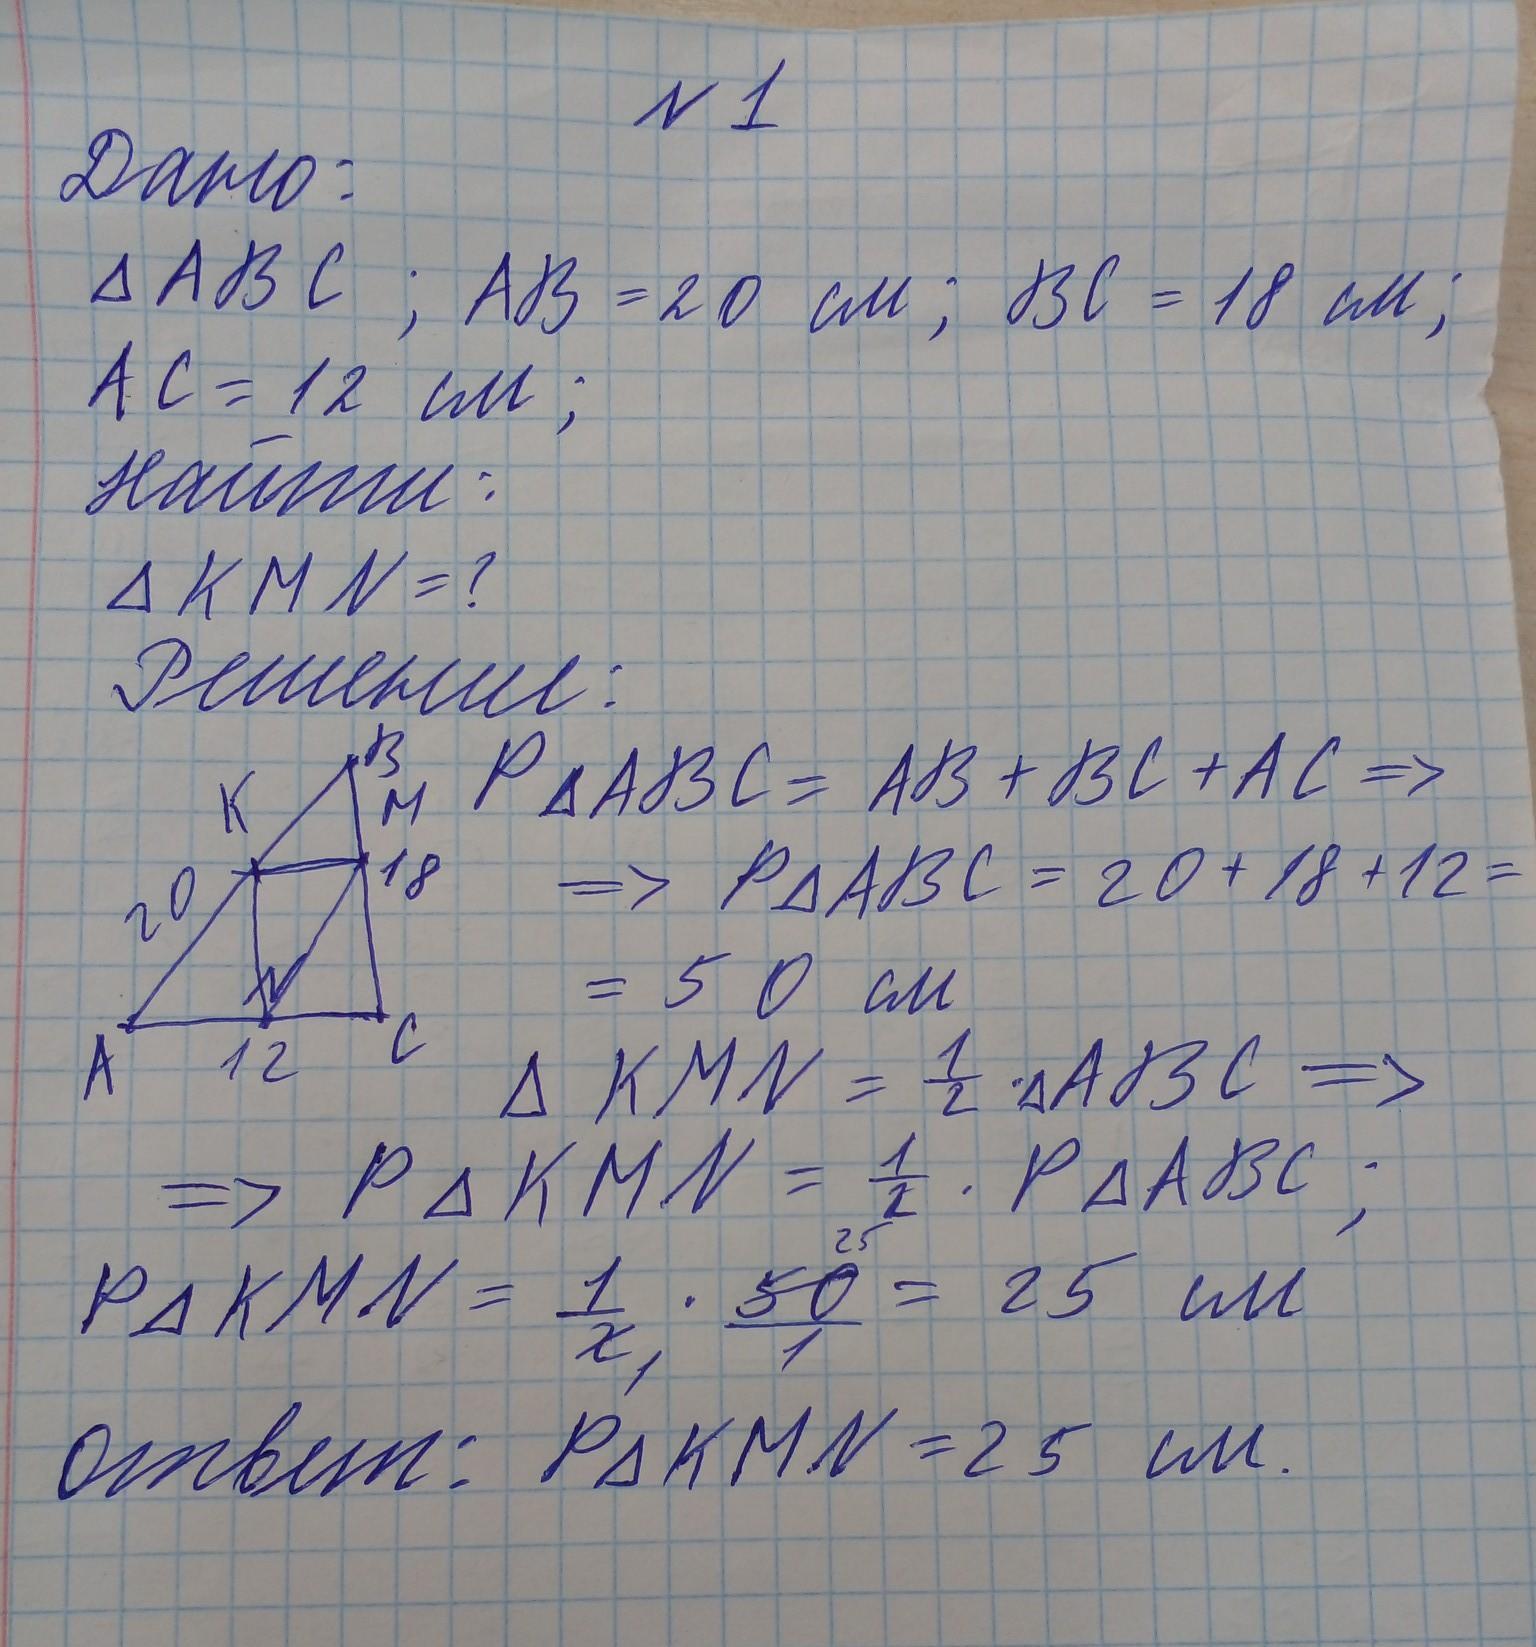 N 1
Дано:
△ABC ; AB = 20 см; BC = 18 см;
AC = 12 см;
Найти:
△KMN = ?
Решение:
B
K
M
20
18
N
A
12
C
P△ABC = AB + BC + AC =>
=> P△ABC = 20 + 18 + 12 =
= 50 см
△ KMN = 1/2 · △ABC =>
=> P△KMN = 1/2 · P△ABC;
25
P△KMN = 1/2, · 50/1 = 25 см
1
Ответ: P△KMN = 25 см.